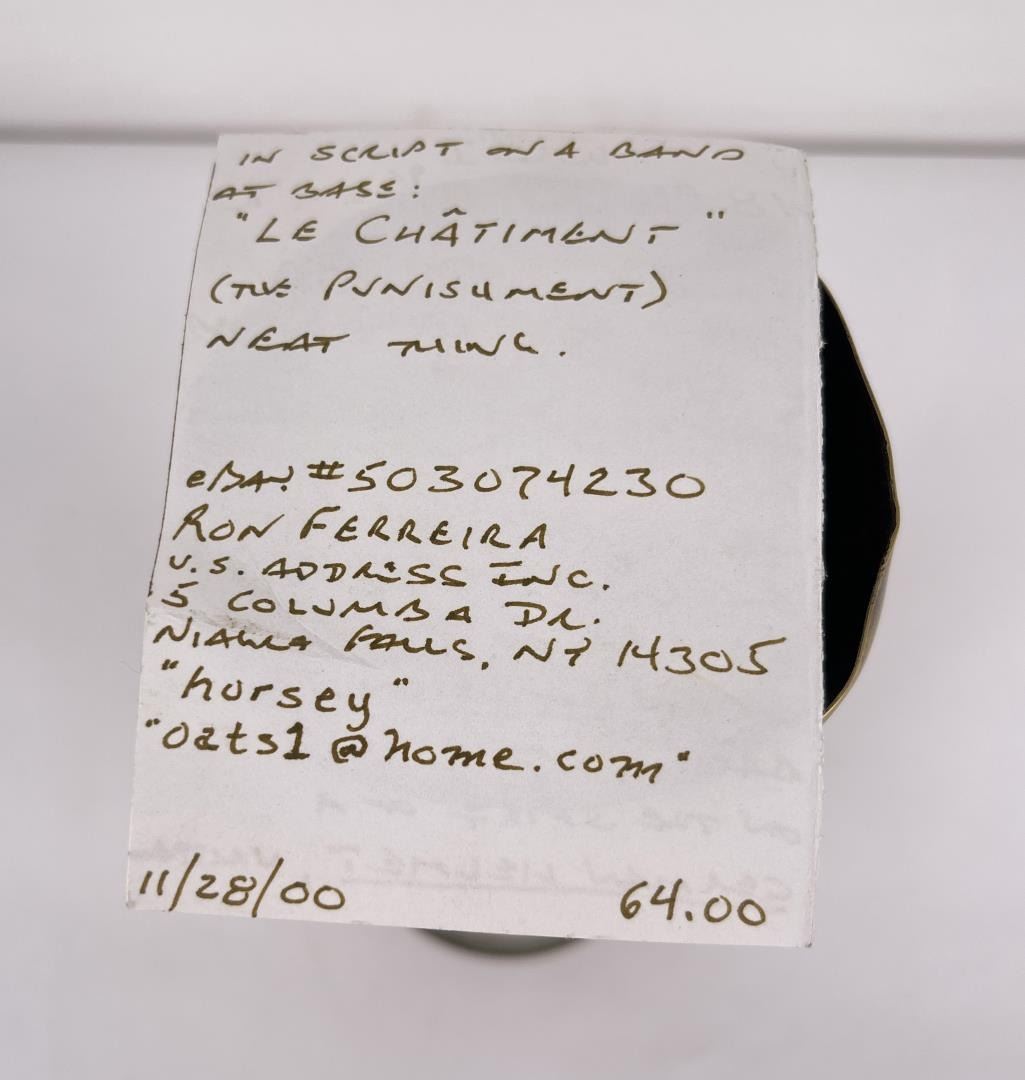 IN SCRIPT ON A BAND
AT BASE:
"LE CHÂTIMENT"
(THE PUNISHMENT)
NEAT THING.
eBAY #503074230
RON FERREIRA
U.S. ADDRESS INC.
5 COLUMBA DR.
NIAGRA FALLS, NY 14305
"horsey"
"oats1@home.com"
11/28/00 64.00